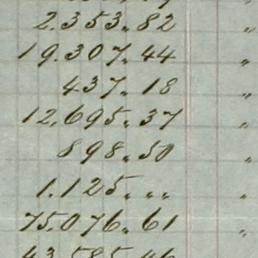 2.353„82 „
19.307„44 „
437„18 „
12.695„37 „
898„50 „
1.125„„„ „
75.076„61 „
43.585„46